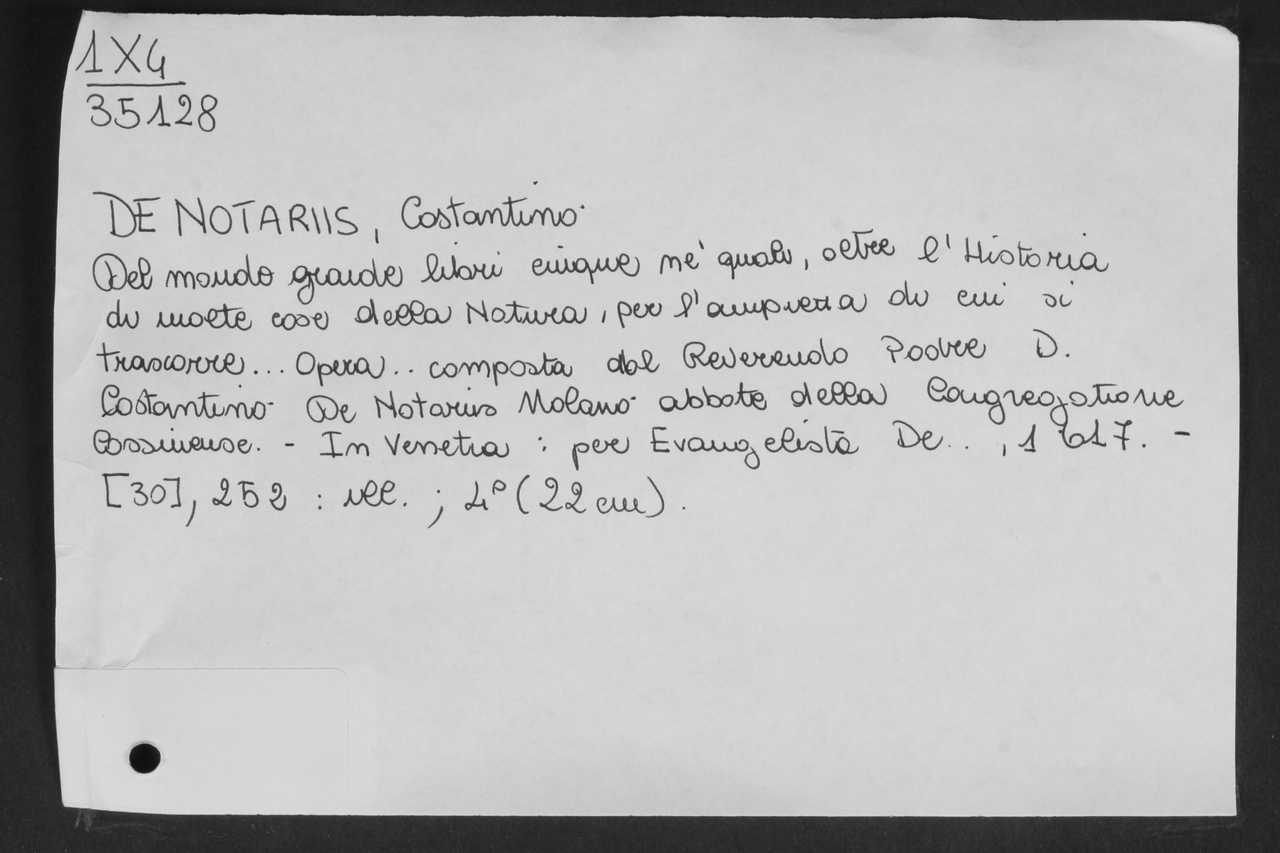 1X4
35128
DE NOTARIIS, Costantino.
Del mondo grande libri cinque ne' quali, oltre l'Historia
di molte cose della Natura, per l'ampiezza di cui si
trascorre... Opera.. composta dal Reverendo Padre D.
Costantino De Notariis Nolano abbate della Congregatione
Cassinense. - In Venetia : per Evangelista De.. , 1617. -
[30], 252 : ill. ; 4° (22 cm).